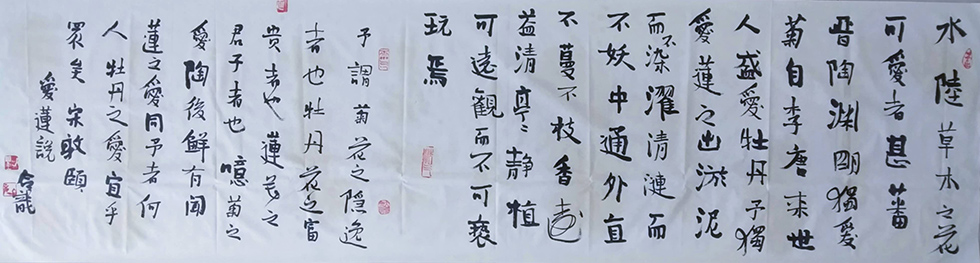 水陸草木之花
可愛者甚蕃
晉陶渊明獨愛
菊自李唐来世
人盛愛牡丹予獨
愛蓮之出淤泥
而不染濯清漣而
不妖中通外直
不蔓不枝香遠
益清亭亭静植
可遠觀而不可褻
玩焉
予謂菊花之隱逸
者也牡丹花之富
贵者也蓮花之
君子者也噫菊之
愛陶後鮮有聞
蓮之愛同予者何
人牡丹之愛宜乎
眾矣宋敦頤
愛蓮説